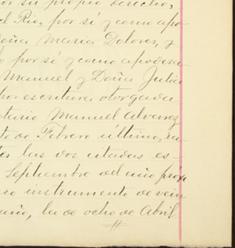 por su propio derecho,
del Rio, por sí y como apo-
Doña Maria Dolores, y
o por sí y como apodera-
Manuel y Doña Julia
por escritura otorgada
otario Manuel Alvarez
te de Febrero último, su-
las dos citadas es-
Septiembre del año
instrumento de vein
año, la de ocho de Abril